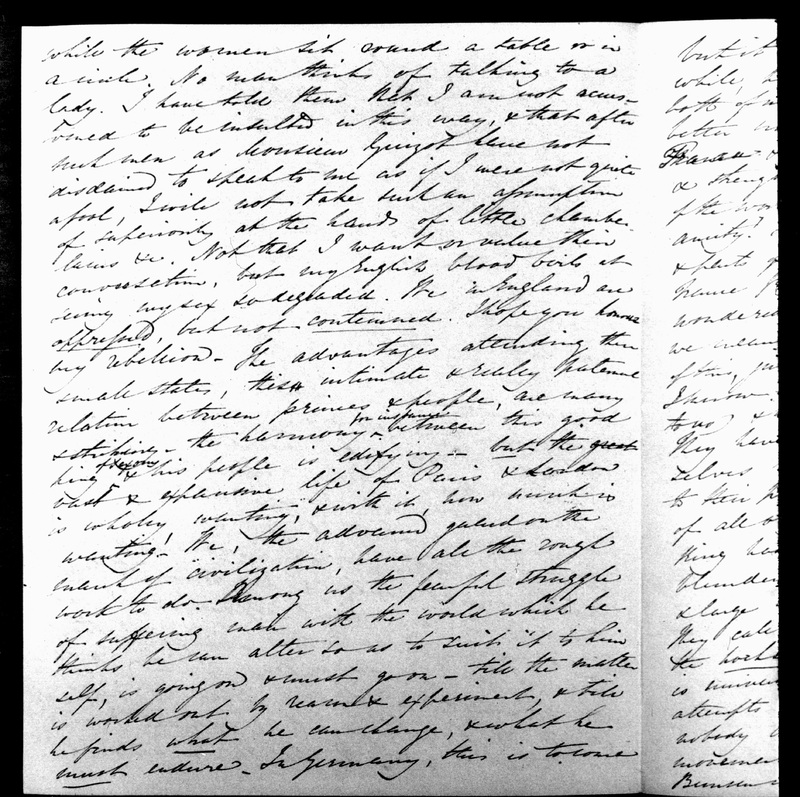 while the women sit round a table or in
a circle. No man thinks of talking to a
lady. I have told them that I am not accus-
tomed to be insulted in this way, & that after
such men as Monsieur Guizot have not
disdained to speak to me as if I were not quite
a fool, I will not take such an assumption
of superiority at the hands of little chamber-
lains &c. Not that I want or value their
conversation, but my English blood boils at
seeing my sex so degraded. We in England are
oppressed, but not contemned. I hope you honour
my rebellion - The advantages attending these
small states, this intimate & really paternal
relation between princes & people, are many
& striking - the harmony - for instance between this good
king of Saxony & his people is edifying - but the great
vast & expansive life of Paris & London
is wholly wanting, & with it, how much is
wanting - We, the advanced guard on the
march of civilization, have all the rough
work to do. Among us the fearful struggle
of suffering man with the world which he
thinks he can alter so as to suit it to him
self, is going on & must go on - till the matter
is worked out by reason & experiment, & till
he finds what he can change, & what he
must endure - In Germany, this is to come
but it
while, h
both of
better
France -
& though
of the wor
amity?
& parts
France
wondered
we mean
often,
I know.
to us &
They have
selves
to their p
of all
King has
blunder
& large
They call
the
is univer
attempts
nobody
movemen
Bunsen